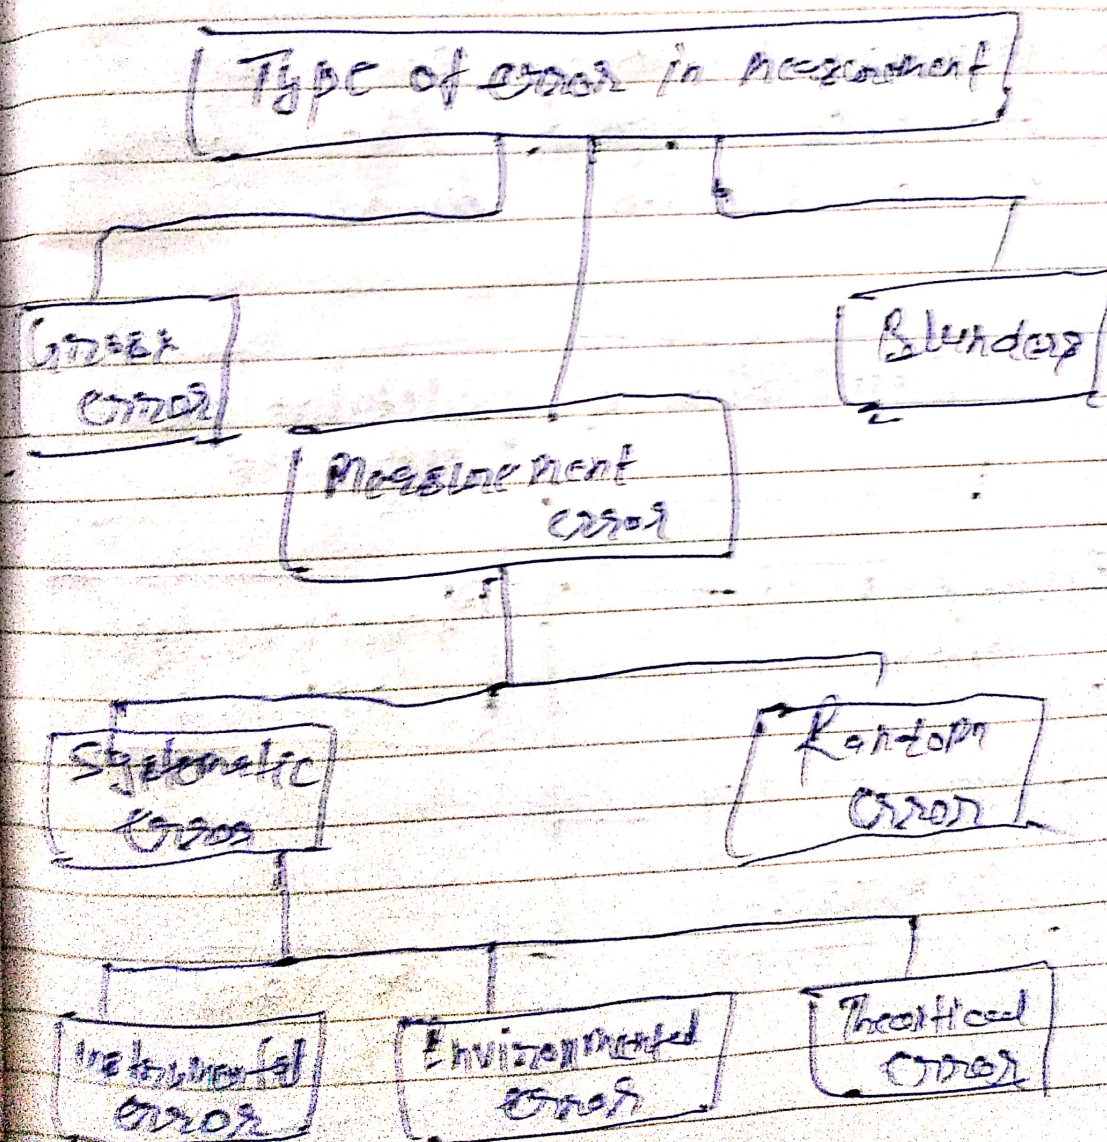 Type of error in measurement
Gross
error
Blunders
Measurement
error
Systematic
error
Random
error
Instrumental
error
Environmental
error
Theoritical
error